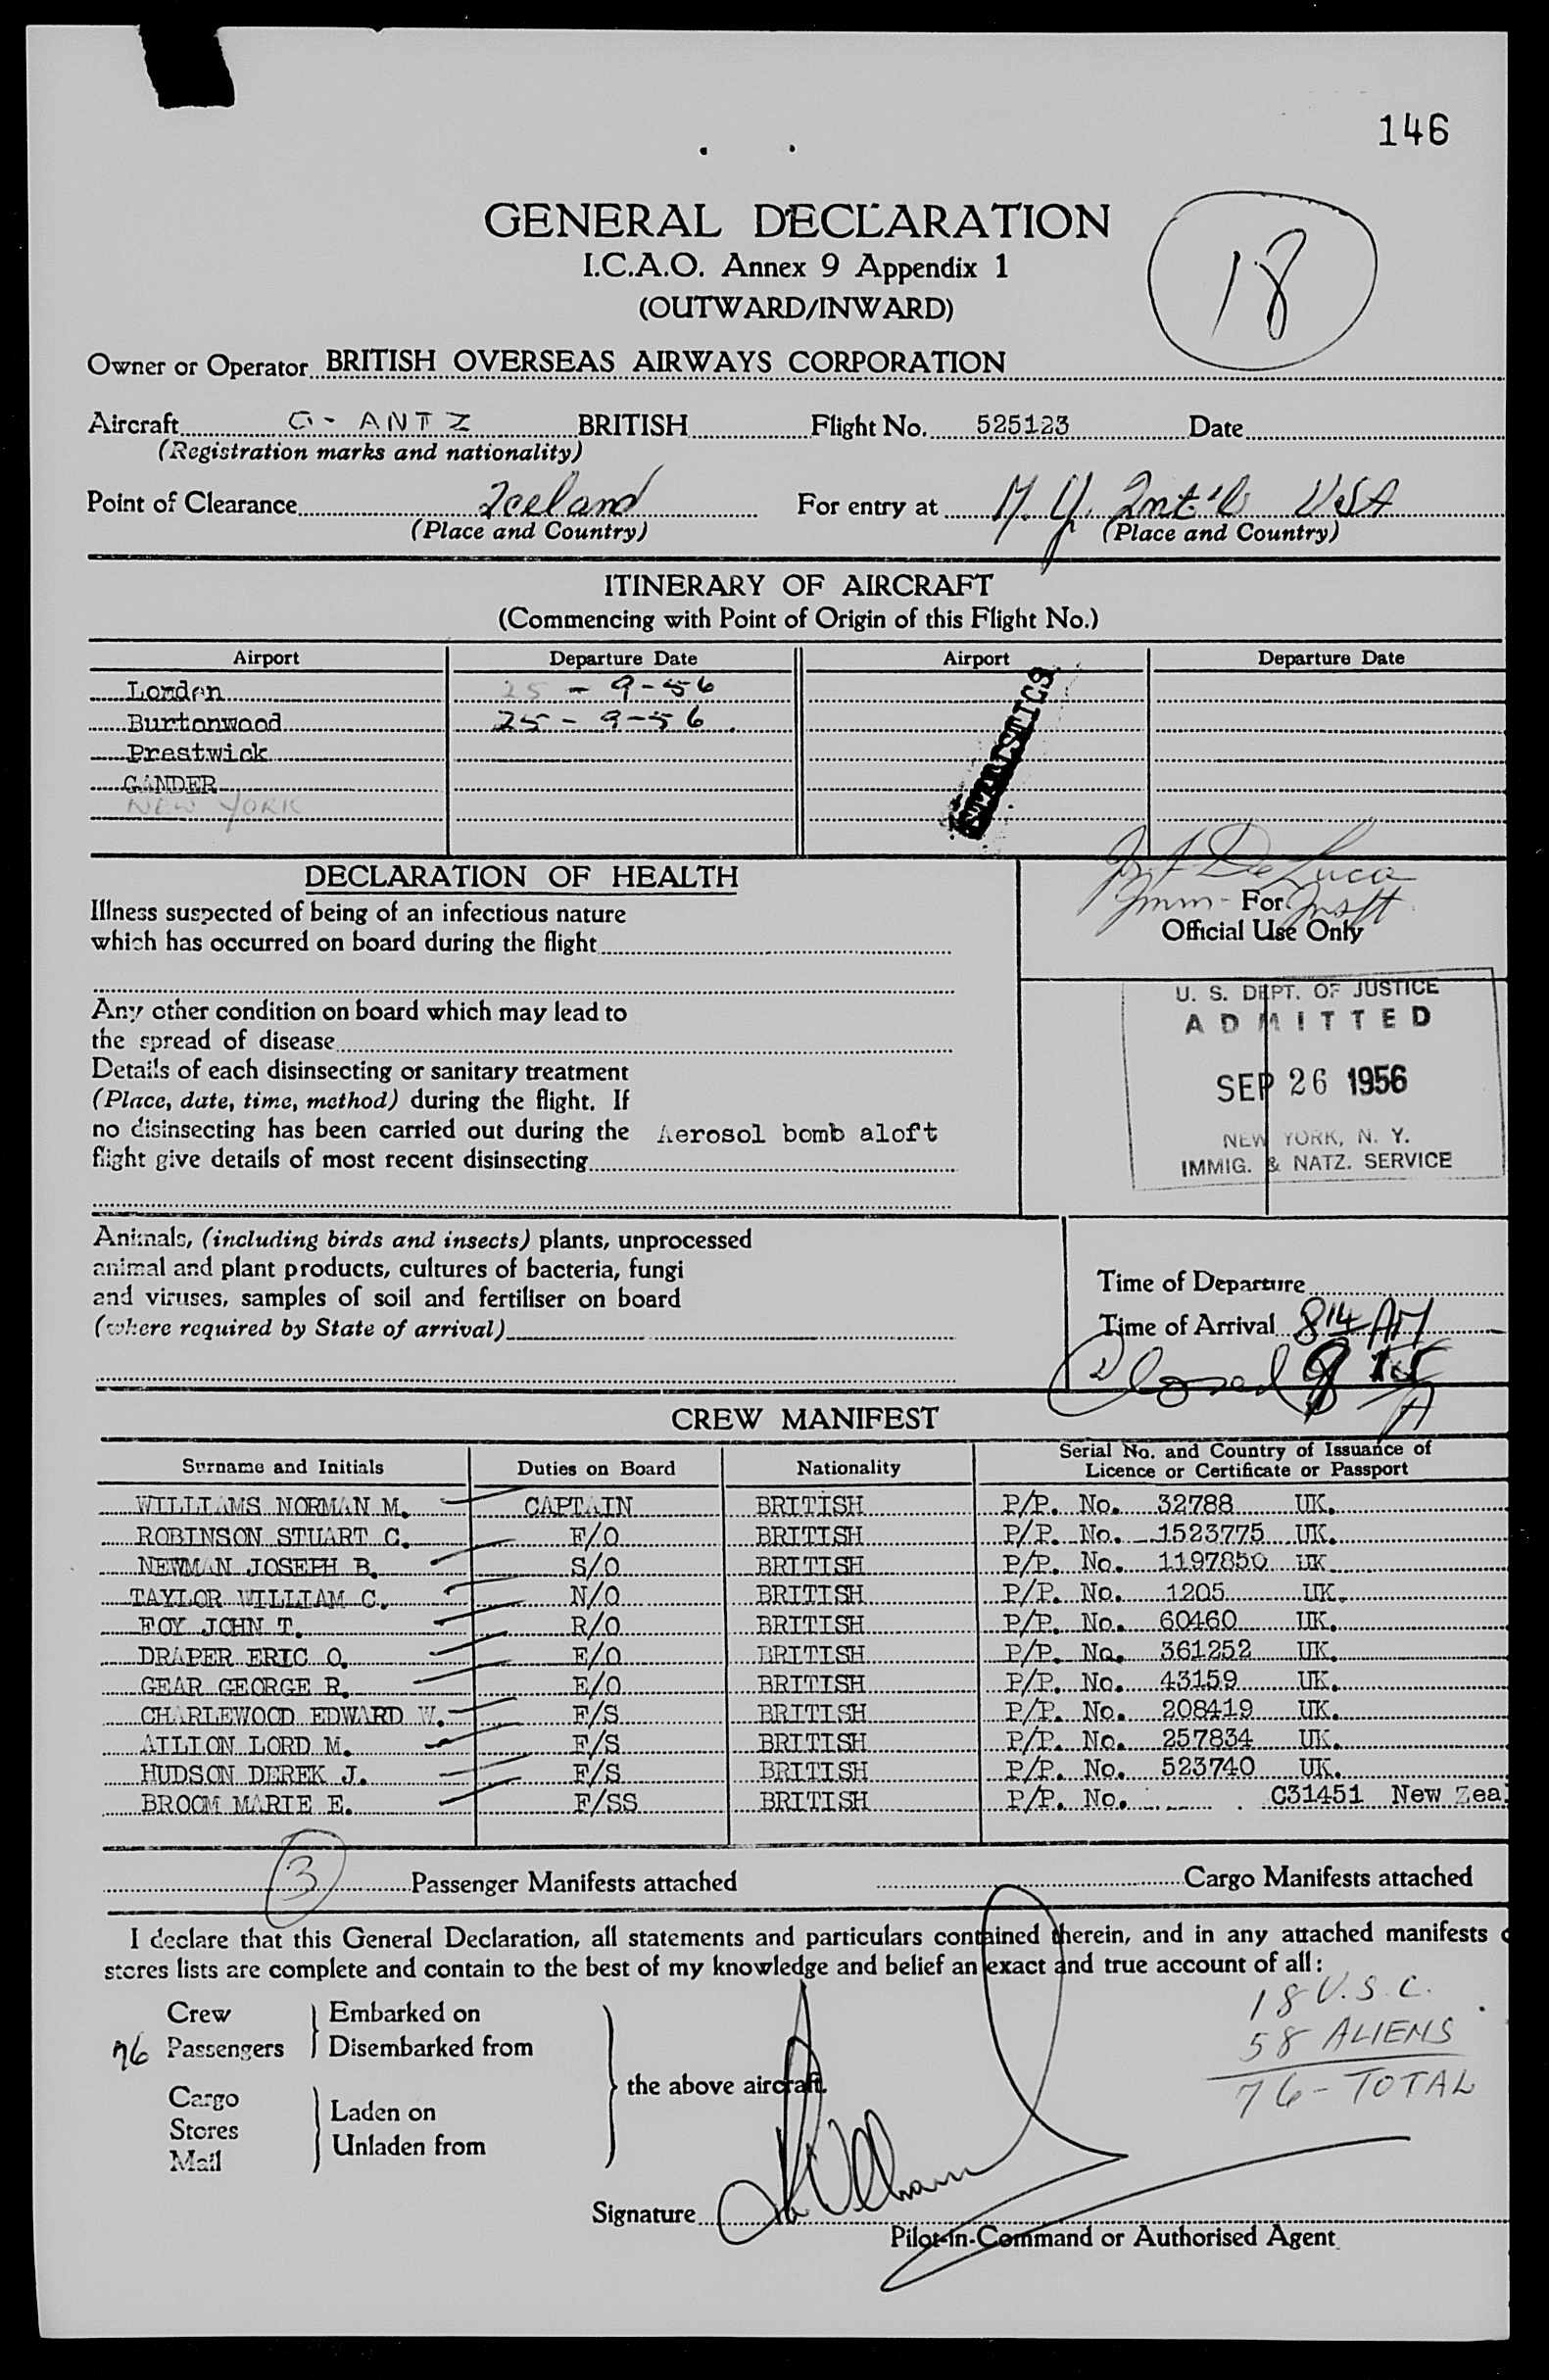 146
GENERAL DECLARATION
18
I.C.A.O. Annex 9 Appendix 1
(OUTWARD/INWARD)
Owner or Operator BRITISH OVERSEAS AIRWAYS CORPORATION
Aircraft G - ANTZ BRITISH Flight No. 525123 Date
(Registration marks and nationality)
Point of Clearance Iceland For entry at N.Y. Int'l USA
(Place and Country) (Place and Country)
ITINERARY OF AIRCRAFT
(Commencing with Point of Origin of this Flight No.)
Airport Departure Date Airport Departure Date
London 25 - 9-56
Burtonwood 25 - 9-56
Prestwick
GANDER
NEW YORK
STATISTICS
De Luca
DECLARATION OF HEALTH
Imm - Insp't.
For
Official Use Only
Illness suspected of being of an infectious nature
which has occurred on board during the flight
Any other condition on board which may lead to
the spread of disease
Details of each disinsecting or sanitary treatment
(Place, date, time, method) during the flight. If
no disinsecting has been carried out during the Aerosol bomb aloft
flight give details of most recent disinsecting
U. S. DEPT. OF JUSTICE
ADMITTED
SEP 26 1956
NEW YORK, N. Y.
IMMIG. & NATZ. SERVICE
Animals, (including birds and insects) plants, unprocessed
animal and plant products, cultures of bacteria, fungi
and viruses, samples of soil and fertiliser on board
(where required by State of arrival)
Time of Departure
Time of Arrival 8 14 AM
Closed 8
CREW MANIFEST
Surname and Initials Duties on Board Nationality Serial No. and Country of Issuance of Licence or Certificate or Passport
WILLIAMS NORMAN M. CAPTAIN BRITISH P/P. No. 32788 UK.
ROBINSON STUART C. F/O BRITISH P/P. No. 1523775 UK.
NEWMAN JOSEPH B. S/O BRITISH P/P. No. 1197850 UK
TAYLOR WILLIAM C. N/O BRITISH P/P. No. 1205 UK.
FOY JOHN T. R/O BRITISH P/P. No. 60460 UK.
DRAPER ERIC O. E/O BRITISH P/P. No. 361252 UK.
GEAR GEORGE R. E/O BRITISH P/P. No. 43159 UK.
CHARLEWOOD EDWARD W. F/S BRITISH P/P. No. 208419 UK.
AILION LORD M. F/S BRITISH P/P. No. 257834 UK.
HUDSON DEREK J. F/S BRITISH P/P. No. 523740 UK.
BROOM MARIE E. F/SS BRITISH P/P. No. C31451 New Zea
3 Passenger Manifests attached Cargo Manifests attached
I declare that this General Declaration, all statements and particulars contained therein, and in any attached manifests
stores lists are complete and contain to the best of my knowledge and belief an exact and true account of all:
Crew Embarked on
76 Passengers Disembarked from
the above aircraft.
Cargo
Stores Laden on
Mail Unladen from
18 U.S.C.
58 ALIENS
76 - TOTAL
Signature
Pilot-in-Command or Authorised Agent